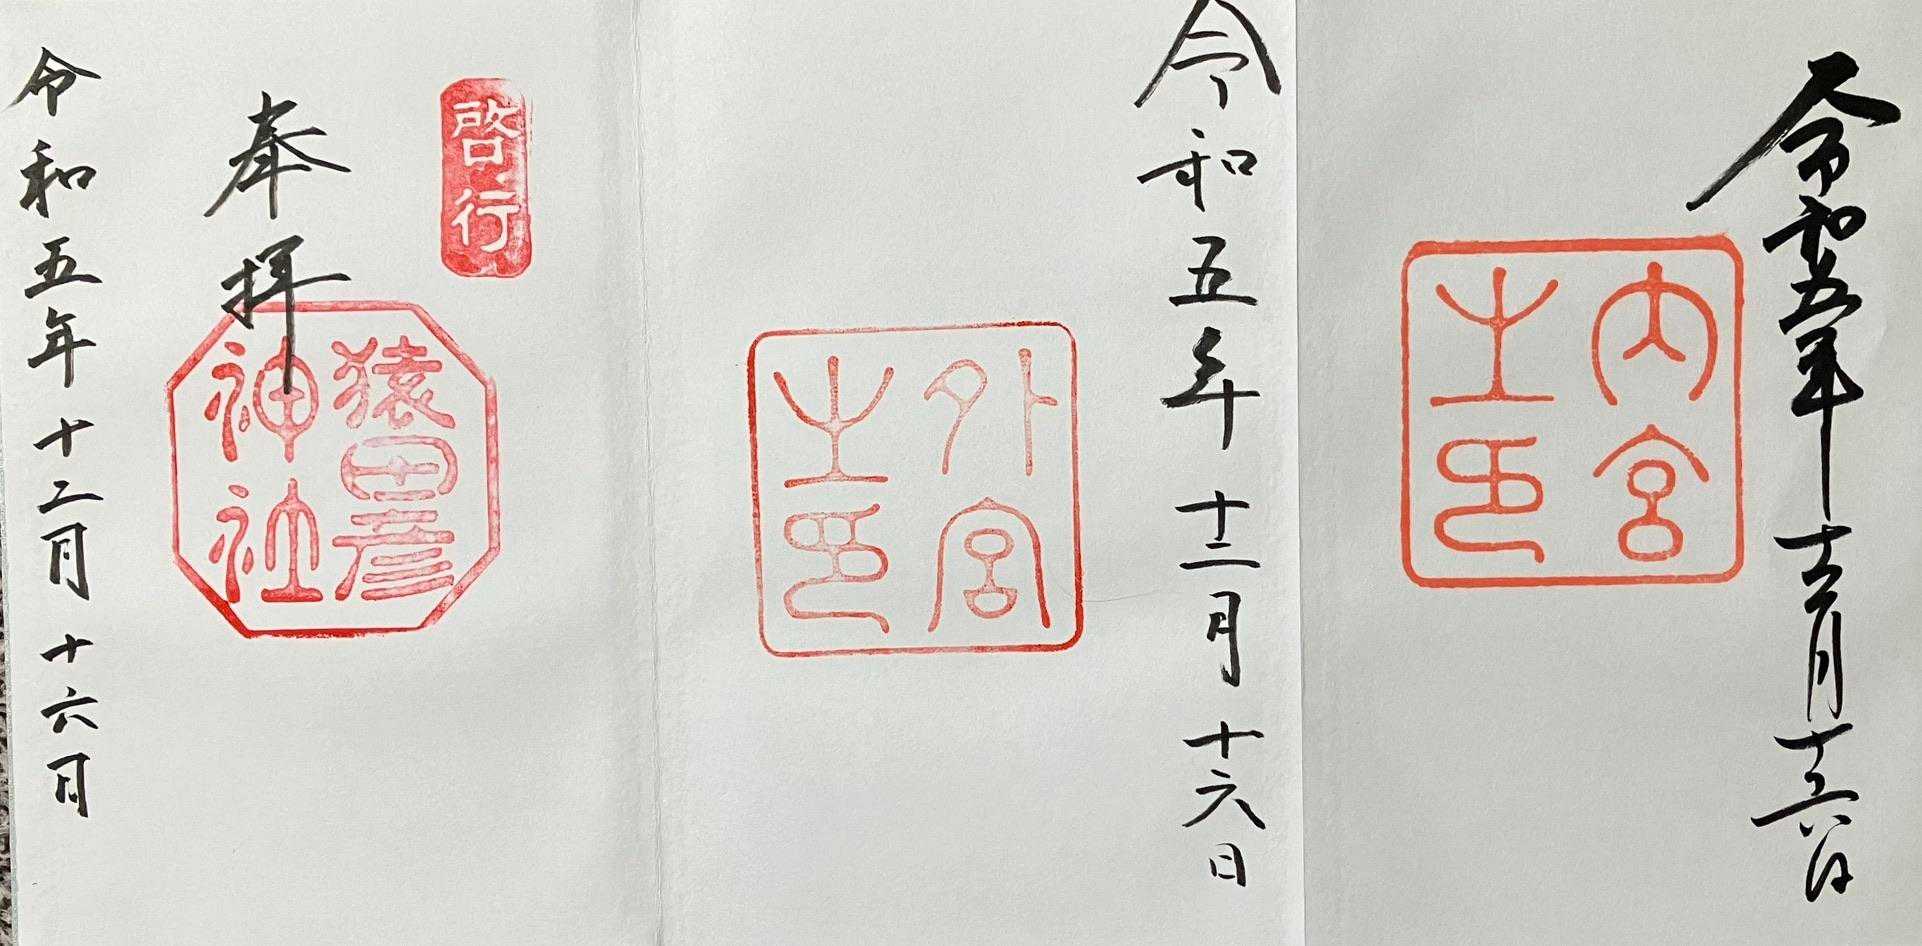 令和五年十二月十六日
内宮
之印
令和五年十二月十六日
外宮
之印
啓行
奉拝
猿田彦
神社
令和五年十二月十六日